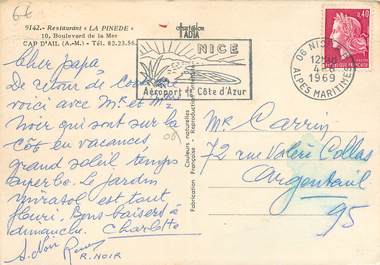 66
9142.- Restaurant "LA PINEDE"
10, Boulevard de la Mer
CAP D'AIL (A.-M.) - Tél. 82.23.56
NICE
Aéroport de la Côte d'Azur
06 NICE
12H
4-
1969
ALPES MARITIMES
0,40
Cher papa
De retour de
voici avec Mr et Mme
Noir qui sont sur la
Côte en vacances,
grand soleil temps
superbe. Le jardin
mirasol est tout
fleuri. Bons baisers à
dimanche. Charlotte
R. NOIR
Fabrication Française
Couleurs naturelles
Reproduction
Mr Carrin
72 rue Valère Collas
Argenteuil
95